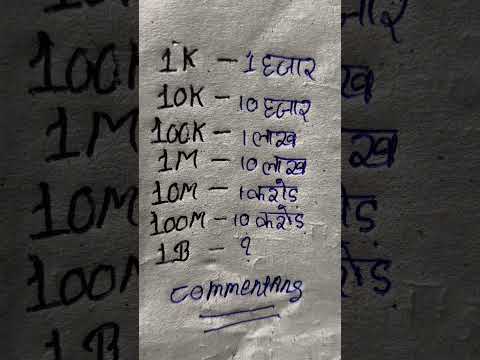 1K - 1 हजार
10K - 10 हजार
100K - 1 लाख
1M - 10 लाख
10M - 1 करोड़
100M - 10 करोड़
1B - ?